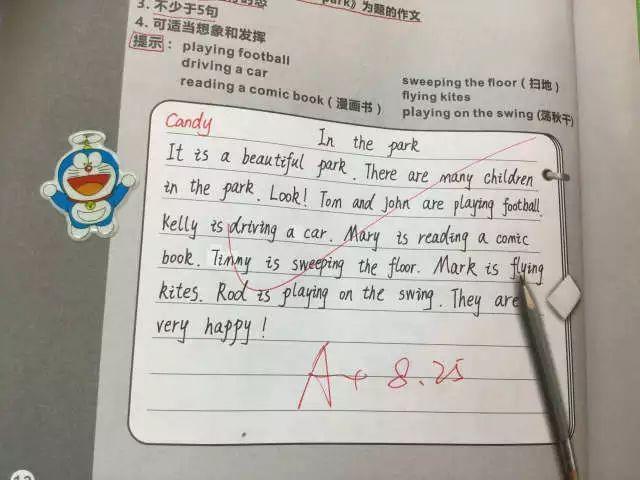 3. 不少于5句
park》为题的作文
4. 可适当想象和发挥
提示：playing football
driving a car
reading a comic book（漫画书）
sweeping the floor（扫地）
flying kites
playing on the swing（荡秋千）
Candy
In the park
It is a beautiful park. There are many children
in the park. Look! Tom and John are playing football.
Kelly is driving a car. Mary is reading a comic
book. Timmy is sweeping the floor. Mark is flying
kites. Rod is playing on the swing. They are
very happy!
A+ 8.25